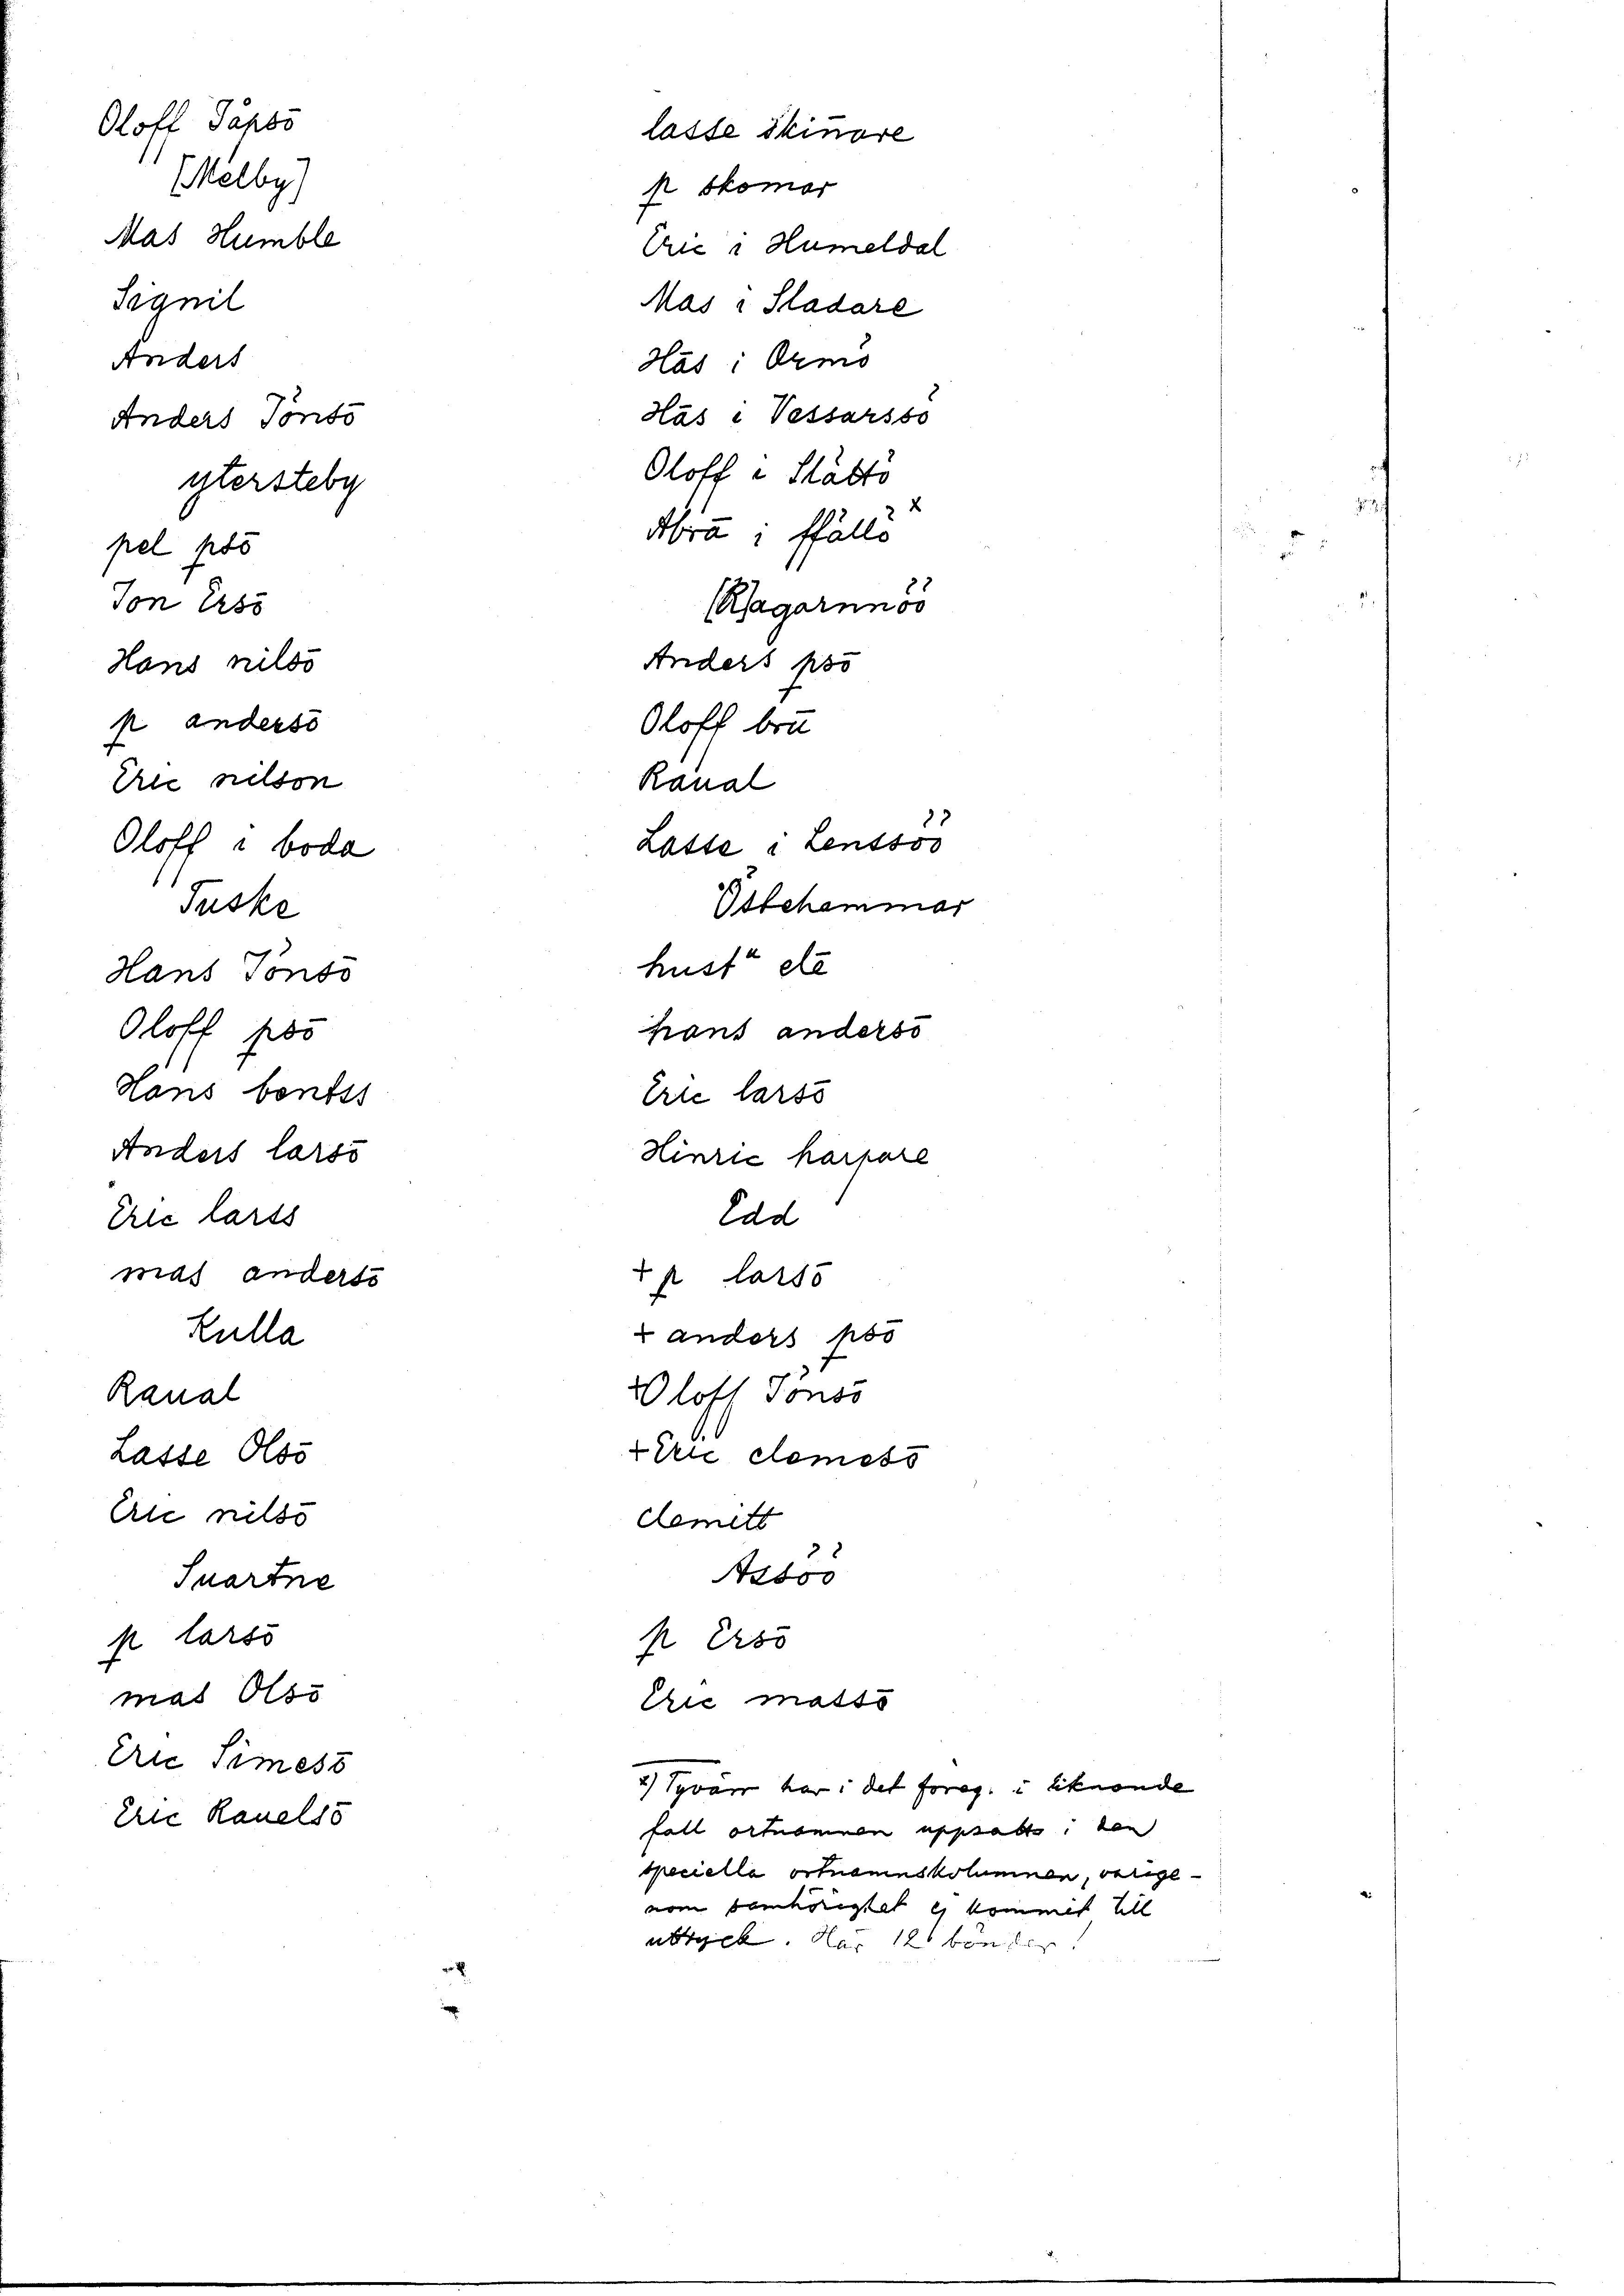 Oloff Jåpsō
(Melby)
Mas Humble
Signil
Anders
Anders Jönsō
ytersteby
pel psō
Jon Ersō
Hans nilsō
p andersō
Eric nilson
Oloff i boda
Tuske
Hans Jönsō
Oloff psō
Hans bentss
Anders larsō
Eric larss
mas andersō
Kulla
Raual
Lasse Olsō
Eric nilsō
Suartne
p larsō
mas Olsō
Eric Simesō
Eric Rauelsō
lasse skin̄are
p skomar
Eric i Humeldal
Mas i Sladare
Hās i Ormö
Hās i Vessarssö
Oloff i Slättö
Abrā i ffällö x
(R)agarnnöö
Anders psō
Oloff brū
Raual
Lasse i Lenssöö
Östehammar
hustu elē
hans andersō
Eric larsō
Hinric harpare
Edd
+ p larsō
+ anders psō
+ Oloff Jönsō
+ Eric clemesō
clemitt
Assöö
p Ersō
Eric matsō
x) Tyvärr har i det föreg. i liknande
fall ortnamnen uppsatts i den
speciella ortnamnskolumnen, varige-
nom samhörighet ej kommit till
uttryck. Här 12 bönder!